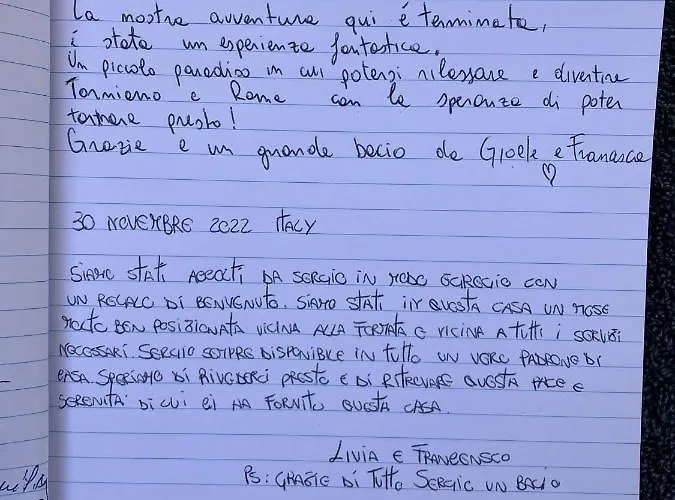 La nostra avventura qui é terminata,
é stata un esperienza fantastica.
Un piccolo paradiso in cui potersi rilassare e divertire
Torniamo a Roma con la speranza di poter
tornare presto!
Grazie e un grande bacio da Gioele e Francesca
♡
30 NOVEMBRE 2022 ITALY
SIAMO STATI ACCOLTI DA SERGIO IN MODO EGREGIO CON
UN REGALO DI BENVENUTO. SIAMO STATI IN QUESTA CASA UN MESE
MOLTO BEN POSIZIONATA VICINA ALLA FERMATA E VICINA A TUTTI I SERVIZI
NECESSARI. SERGIO SEMPRE DISPONIBILE IN TUTTO UN VERO PADRONE DI
CASA. SPERIAMO DI RIVEDERCI PRESTO E DI RITROVARE QUESTA PACE E
SERENITA' DI CUI CI HA FORNITO QUESTA CASA.
LIVIA E FRANCENSCO
PS: GRAZIE DI TUTTO SERGIO UN BACIO